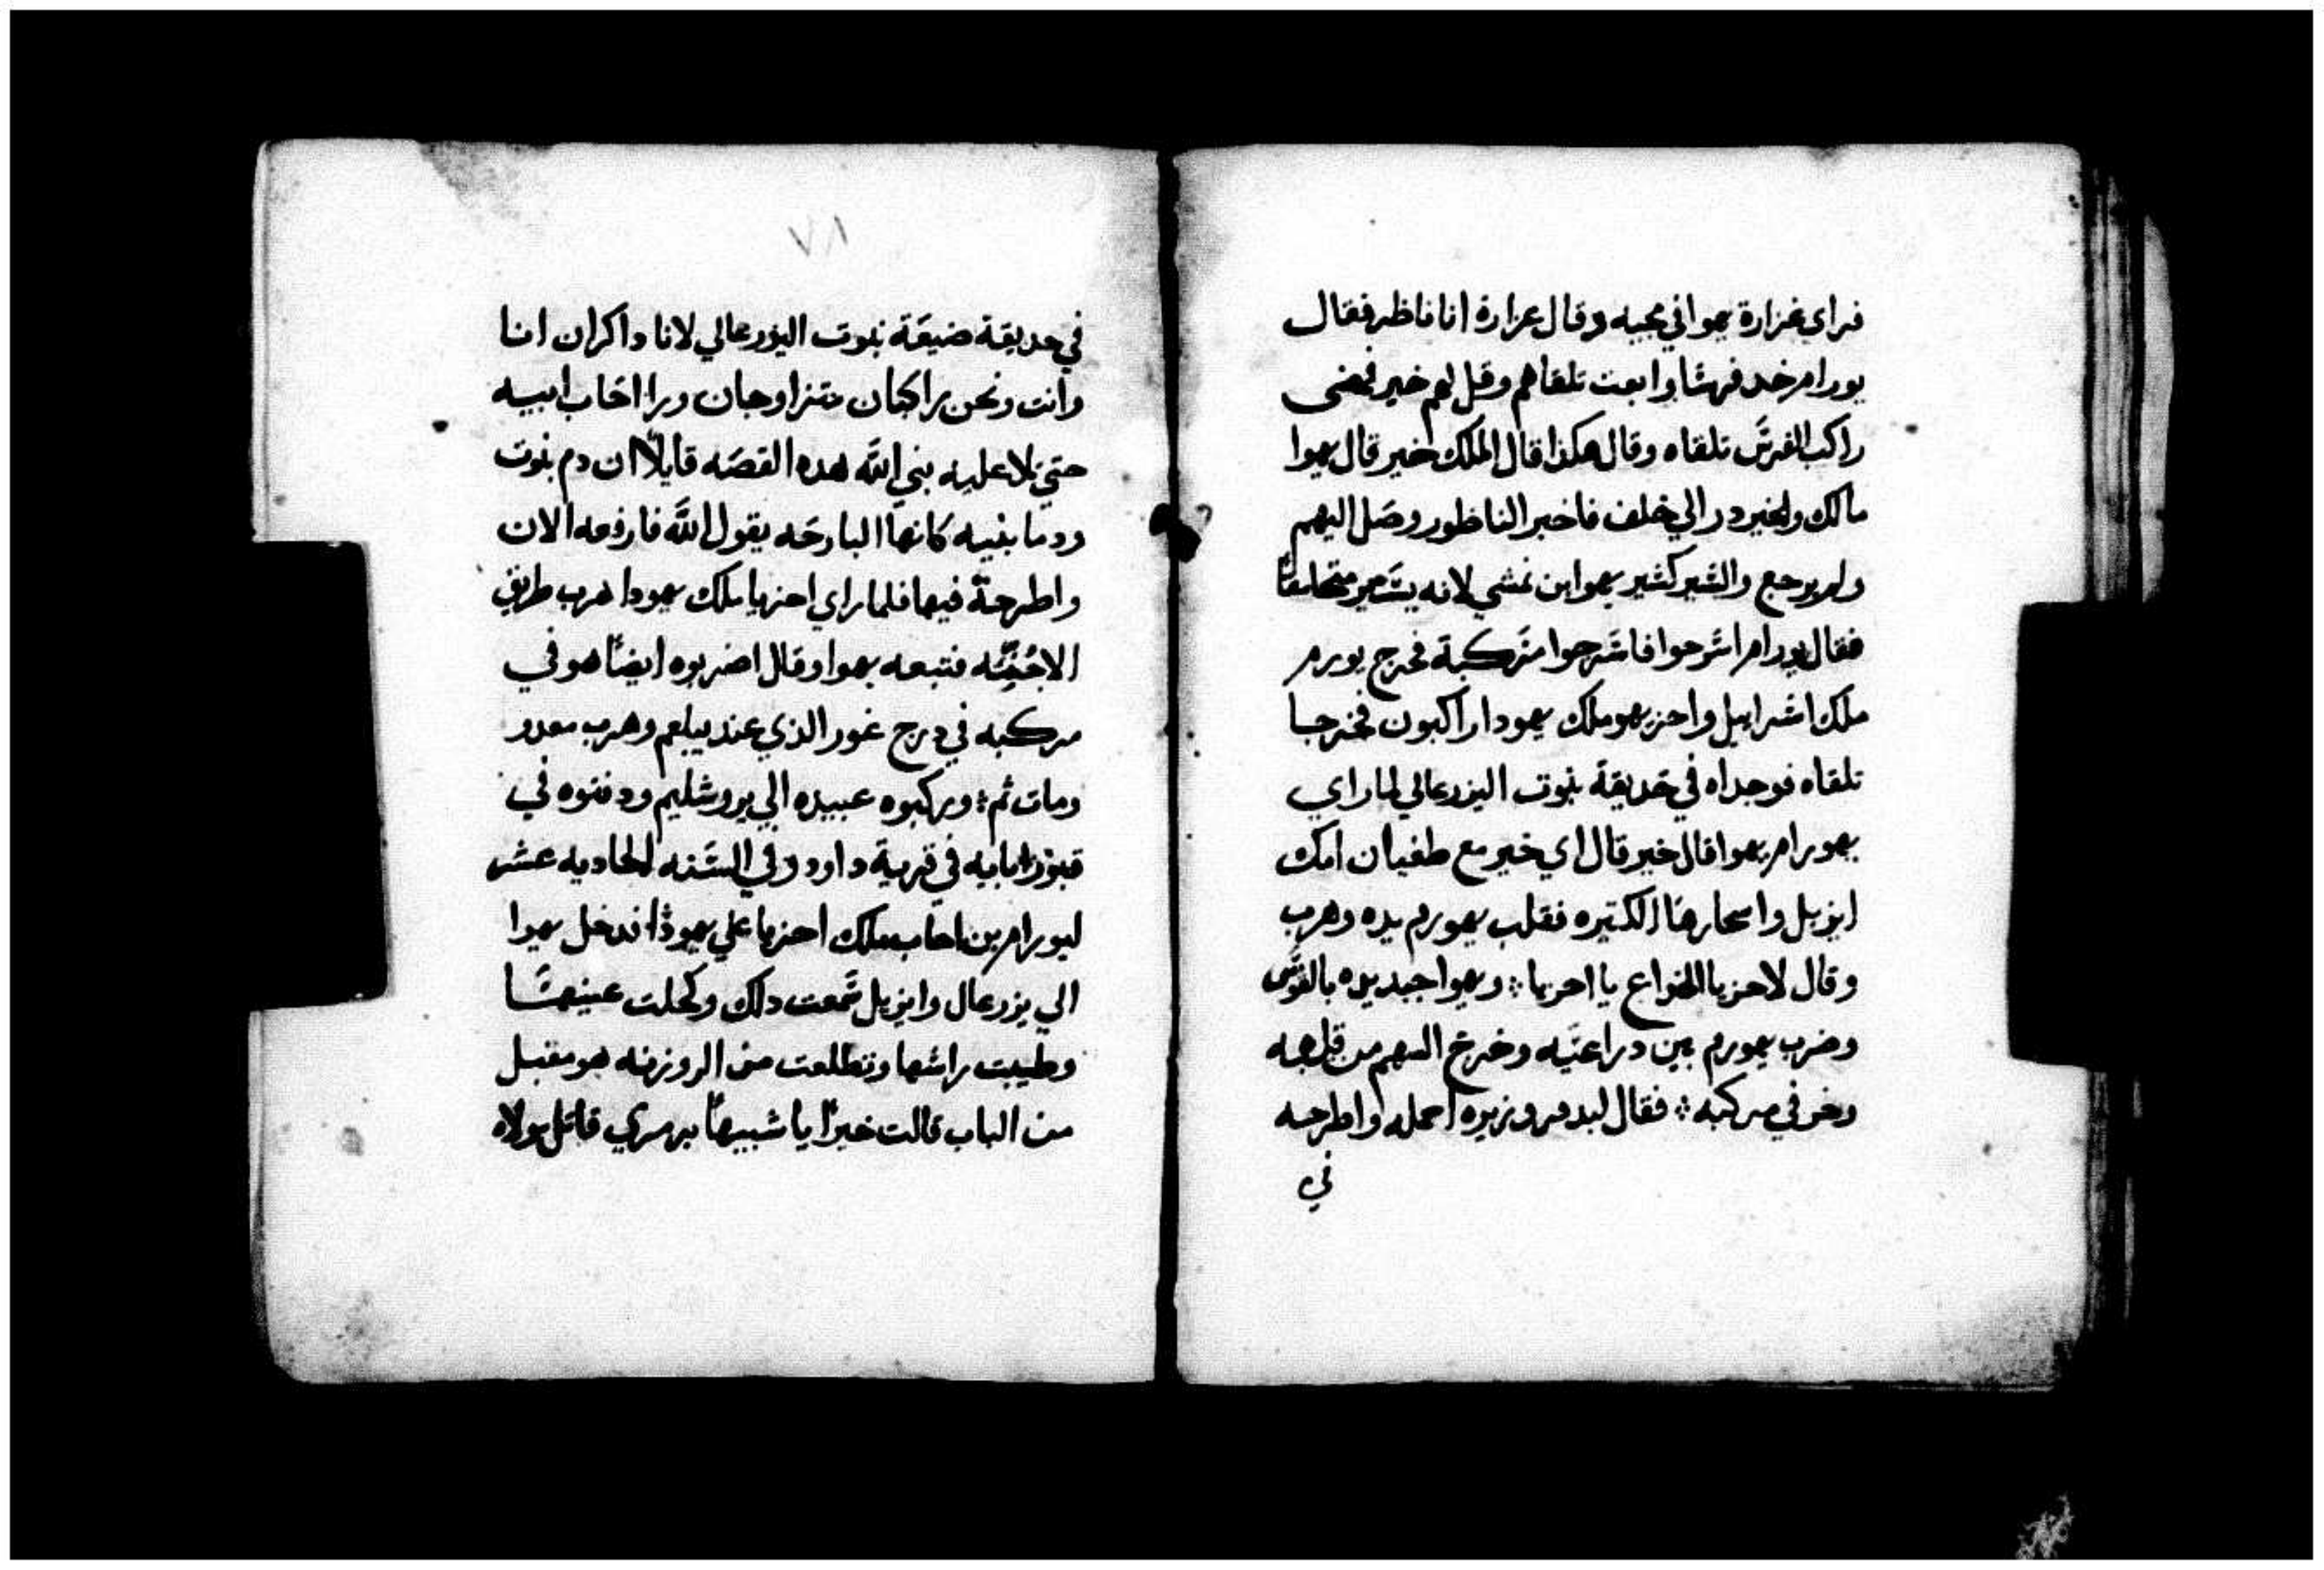 فراي غزارة يهوا في مجيه وقال غزارة انا ناظر فقال
يورام خد فرسًا وابعت تلقاهم وقل لهم خير فمضى
راكب الفرسَ تلقاه وقال هكذا قال الملك خير قال يهوا
مالك والخير در الي خلف فاخبر الناظور وصَل اليهم
ولم يرجع والسَير كسَير يهوا ابن نمشي لانه يسَير
فقال يورام اسَرحوا فاسَرجوا مَركبة فخرج يورم
ملك اسَراييل واحزيهو ملك يهودا راكبون فخرجا
تلقاه فوجداه في حَديقة نبوت اليزرعالي لما راي
يهورام يهوا قال خير قال اي خير مع طغيان امك
ايزبل واسحارها الكتيره فقلب يهورم يده وهرب
وقال لاحزيا الخداع يا احزيا ؛ ويهوا جبد يده بالقوسَ
وضرب يهورم بين دراعيَه وخرج السهم من قلبه
وخر في مركبه ؛ فقال لبدقر وزيره احمله واطرحه
في
٧٨
في حديقة ضيعَة نبوت اليزرعالي لانا داكران انا
وانت ونحن راكبان متزاوجان ورا اخَاب ابيه
حتي تلا عليه نبي اللّه هده القصَه قايلًا ان دم نبوت
ودما بنيه كانها البارحَه يقول اللَّه فارفعه الان
واطرحة فيها فلما راي احزيا ملك يهودا هرب طريق
الاجُنِيَّه فتبعه يهوا وقال اضربوه ايضًا هو في
مركبه في درج غور الذي عند يبلعم وهرب معدو
ومات ثم ؛ وركبوه عبيده الي يروشليم ودفنوه في
قبور ابايه في قرية داود وفي السَنه الحاديه عشر
ليورام بن احاب ملك احزيا علي يهودا فدخل يهوا
الي يزرعال وايزبل سَمعت دلك وكحلت عينيهَا
وطيبت راسَها وتطلعت من الروزنه هو مقبل
من الباب قالت خيرًا يا شبيهًا بزمري قاتل مولاه